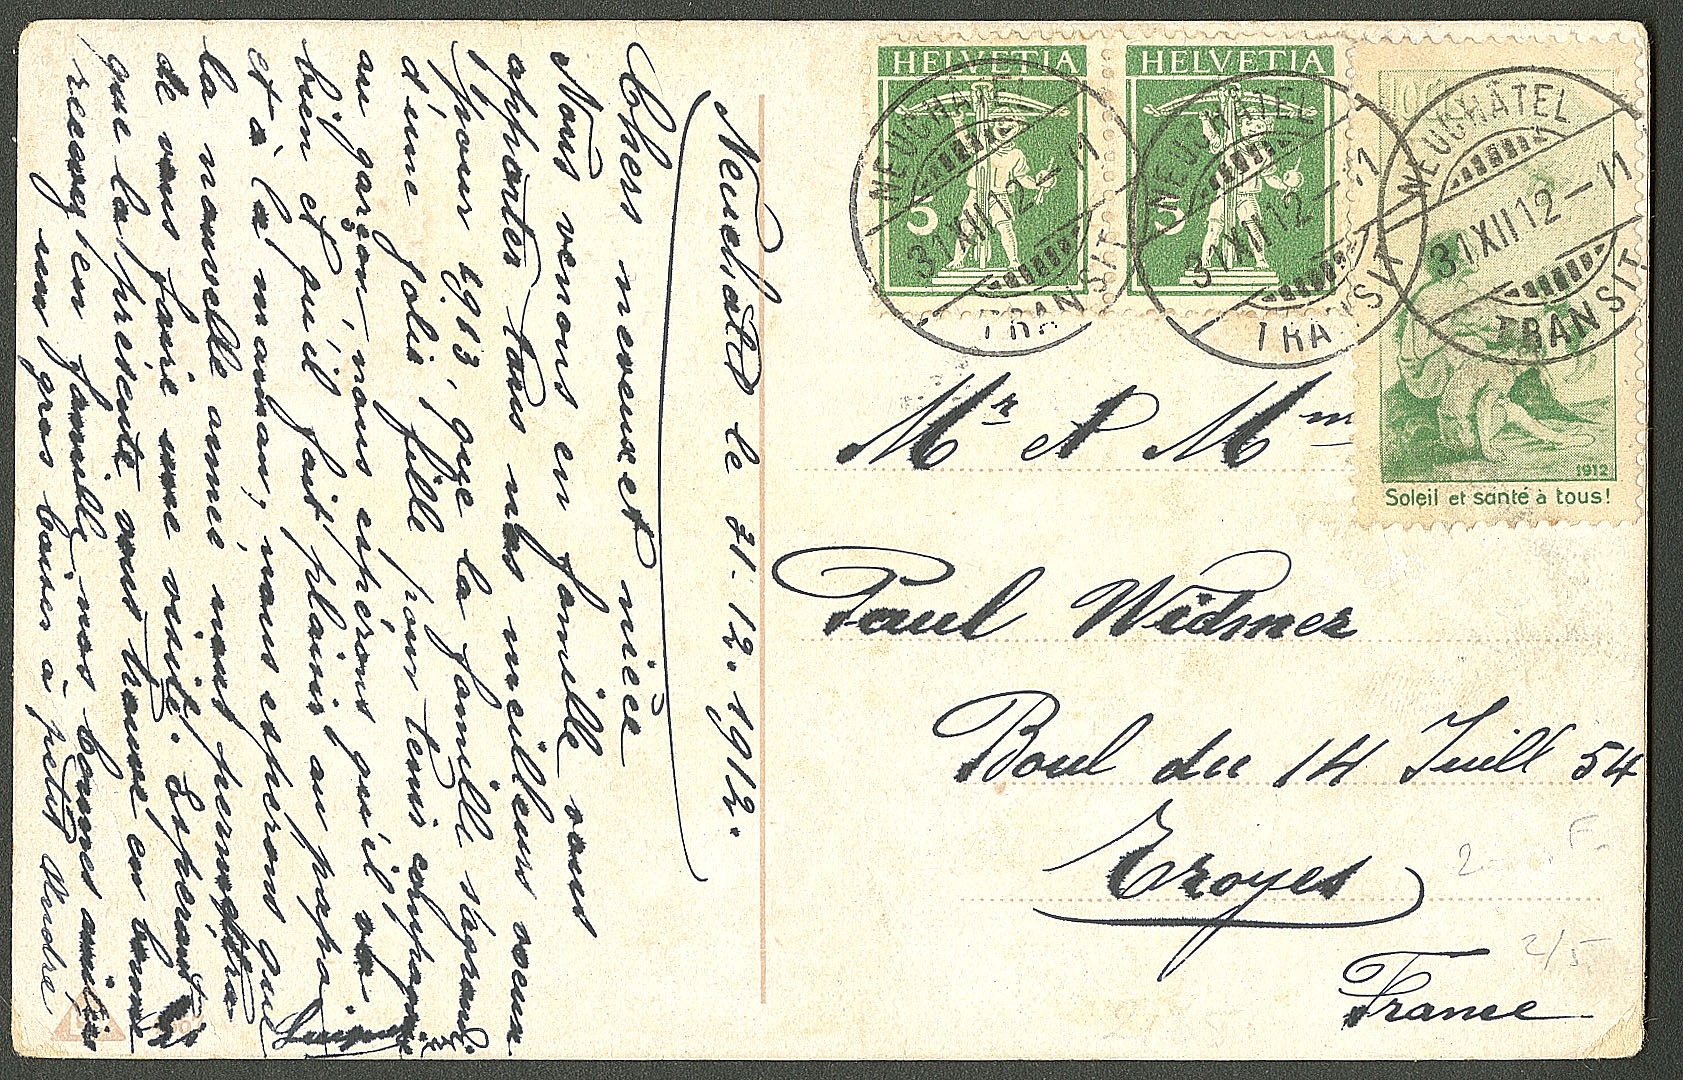 Neuchâtel le 31.12.1912.
Chers neveux et nièce
Nous venons en famille vous
apporter tous nos meilleurs voeux
pour 1913, que la famille s'agrandi
d'une jolie fille pour tenir compagnie
au garçon, nous espérons qu'il va
bien et qu'il fait plaisir au papa
et à la maman, nous espérons que
la nouvelle année nous permettra
de vous faire une visite. Espérant
que la présente vous trouve en bonne
recevez en famille nos bonnes amitiés
un gros baiser à petit André
HELVETIA
5
HELVETIA
5
NEUCHATEL
31 XII 12 – 11
TRANSIT
NEUCHATEL
31 XII 12 – 11
TRANSIT
NEUCHATEL
31 XII 12 – 11
TRANSIT
1912
Soleil et santé à tous!
Mr et Mm
Paul Widmer
Boul du 14 Juill 54
Troyes
France
2/5